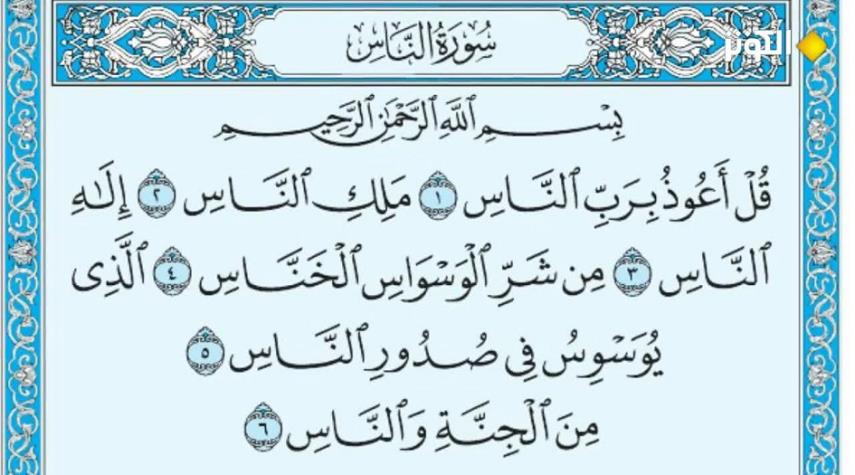 سُورَةُ النَّاسِ
الكوثر
بِسْمِ اللَّهِ الرَّحْمَٰنِ الرَّحِيمِ
قُلْ أَعُوذُ بِرَبِّ النَّاسِ ١ مَلِكِ النَّاسِ ٢ إِلَٰهِ
النَّاسِ ٣ مِن شَرِّ الْوَسْوَاسِ الْخَنَّاسِ ٤ الَّذِي
يُوَسْوِسُ فِي صُدُورِ النَّاسِ ٥
مِنَ الْجِنَّةِ وَالنَّاسِ ٦